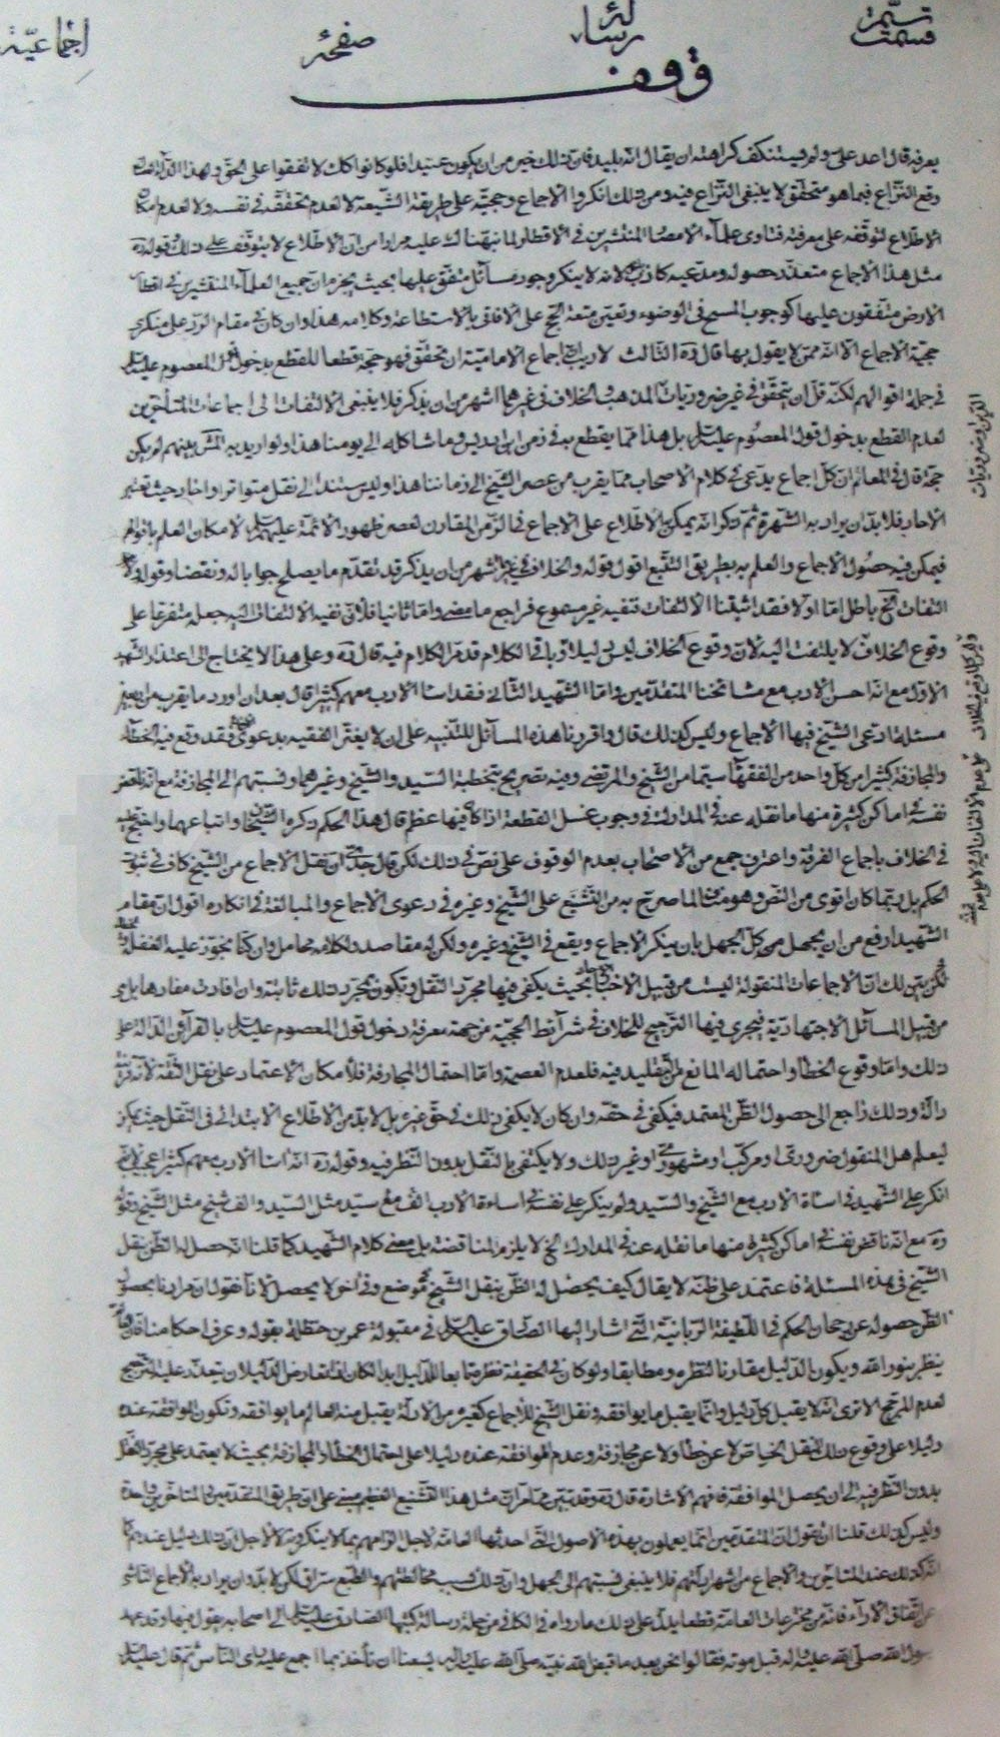 قسمت
رسالة
صفحة
اجماعية
وقف
يعرفه قال اعد على ولم يستنكف كراهته ان يقال انه بليد فان ذلك خير من ان يكون عنيدا فلو كانوا كذلك لاتفقوا على الحق ولهذا
وقع النزاع فيما هو متحقق لا ينبغي النزاع فيه ومن ذلك انكروا الاجماع وحجيته على طريقة الشيعة لا لعدم تحققه في نفسه ولا لعدم امكان
الاطلاع لتوقفه على معرفة فتاوى علماء الامصار المنتشرين في الاقطار لما نبهناك عليه مرارا من ان الاطلاع لا يتوقف على ذلك وقوله ره
مثل هذا الاجماع متعذر حصوله ومدعيه كاذب لانه لا ينكر وجود مسائل متفق عليها بحيث يجزم ان جميع العلماء المنتشرين في اقطار
الارض متفقون عليها كوجوب المسح في الوضوء وتعين متعة الحج على الافاقي بالاستطاعة وكلامه هذا وان كان في مقام الرد على منكري
حجية الاجماع الا انه ممن لا يقول بها قال ره الثالث لا ريب ان اجماع الامامية ان تحقق فهو حجة قطعا للقطع بدخول المعصوم عليه السلام
في جملة اقوالهم لكنه قل ان يتحقق في غير ضروريات المذهب والخلاف في غيرها اشهر من ان يذكر فلا ينبغي الالتفات الى اجماعات المتأخرين
لعدم القطع بدخول قول المعصوم عليه السلام بل هذا مما يقطع به في زمن ابن ادريس وما شاكله الى يومنا هذا ولو اريد به المشهور بينهم لم يكن
حجة قال في المعالم ان كل اجماع يدعى في كلام الاصحاب مما يقرب من عصر الشيخ الى زماننا هذا وليس مستندا الى نقل متواتر او احاد حيث تعتبر
الاحاد فلا بد ان يراد به الشهرة ثم ذكر انه يمكن الاطلاع على الاجماع في الزمن المقارن لعصر ظهور الائمة عليهم السلام لامكان العلم باقوالهم
فيمكن فيه حصول الاجماع والعلم به بطريق التتبع اقول قوله والخلاف في غيرها اشهر من ان يذكر قد تقدم ما يصلح جوابا له ونقضا وقوله فلا
التفات الخ باطل اما اولا فقد اثبتنا الالتفات فنفيه غير مسموع فراجع ما مضى واما ثانيا فلان نفيه الالتفات اليه جعله متفرعا على
وقوع الخلاف لا يلتفت اليه لان وقوع الخلاف ليس دليلا وباقي الكلام قد مر الكلام فيه قال ره وعلى هذا لا يحتاج الى اعتذار الشهيد
الاول مع انه احسن الادب مع مشائخنا المتقدمين واما الشهيد الثاني فقد اساء الادب معهم كثيرا قال بعد ان اورد ما يقرب من
مسئلة ادعى الشيخ فيها الاجماع وليس كذلك قال وافردنا هذه المسائل للتنبيه على ان لا يغتر الفقيه بدعوى الاجماع فقد وقع فيه الخطأ
والمجازفة كثيرا من كل واحد من الفقهاء سيما من الشيخ والمرتضى وفيه تصريح بتخطئة السيد والشيخ وغيرهما ونسبتهم الى المجازفة مع انه ناقض
نفسه في اماكن كثيرة منها ما نقله عنه في المدارك في وجوب غسل القطعة اذا كان فيها عظم قال هذا الحكم ذكره الشيخان واتباعهما واحتج عليه
في الخلاف باجماع الفرقة واعترف جمع من الاصحاب بعدم الوقوف على نص في ذلك لكن قال جدي ان نقل الاجماع من الشيخ كاف في ثبوت
الحكم بل ربما كان اقوى من النص وهو مناف لما صرح به من التشنيع على الشيخ وغيره في دعوى الاجماع والمبالغة في انكاره اقول ان مقام
الشهيد ارفع من ان يجهل محل كل الجهل بان ينكر الاجماع ويقع في الشيخ وغيره ولكن له مقاصد ولكلامه محامل وان كنا نجوز عليه الغفلة
لكن يتبين لك ان الاجماعات المنقولة ليست من قبيل الاخبار بحيث يكفي فيها مجرد النقل وتكون بمجرد ذلك ثابتة وان افادت مفادها بل هي
من قبيل المسائل الاجتهادية فيجري فيها الترجيح للخلاف في شرائط الحجية من جهة معرفة دخول قول المعصوم عليه السلام بالقرائن الدالة على
ذلك واما وقوع الخطأ واحتماله المانع من التقليد فيه فلعدم العصمة واما احتمال المجازفة فلامكان الاعتماد على نقل الثقة لانه قرينة
دالة وذلك راجع الى حصول الظن المعتمد فيكفي في حقه وان كان لا يكفي ذلك في حق غيره بل لا بد من الاطلاع الابتدائي في النقل حيث يمكن
ليعلم هل المنقول ضروري او مركب او مشهوري او غير ذلك ولا يكتفى بالنقل بدون النظر فيه وقوله ره انه اساء الادب معهم كثيرا عجيب
انكر على الشهيد في اساءة الادب مع الشيخ والسيد ولم ينكر على نفسه في اساءة الادب الف مع سيد مثل السيد والف شيخ مثل الشيخ وقوله
ره مع انه ناقض نفسه في اماكن كثيرة منها ما نقله عنه في المدارك الخ لا يلزم المناقضة بل معنى كلام الشهيد كما قلنا انه حصل له الظن بنقل
الشيخ في هذه المسئلة فاعتمد على ظنه لا يقال كيف يحصل له الظن بنقل الشيخ في موضع وفي اخر لا يحصل لانا نقول ان مرادنا بحصول
الظن حصوله عن رجحان الحكم في اللطيفة الربانية التي اشار اليها الصادق عليه السلام في مقبولة عمر بن حنظلة بقوله وعرف احكامنا
ينظر بنور الله ويكون الدليل مقارنا لنظره ومطابقا ولو كان في الحقيقة نظره تابعا للدليل ابدا لكان اذا تعارض الدليلان يتعذر عليه الترجيح
لعدم المرجح الا ترى انه لا يقبل كل دليل وانما يقبل ما يوافقه ونقل الشيخ للاجماع كغيره من الادلة يقبل منه العالم ما يوافقه وتكون الموافقة عنده
دليلا على وقوع ذلك النقل الخاص لا عن خطأ ولا عن مجازفة وعدم الموافقة عنده دليلا على احتمال الخطأ والمجازفة بحيث لا يعتمد على مجرد النقل
بدون النظر فيه الى ان يحصل الموافقة فافهم الاشارة قال ره وقد تبين مما مر ان مثل هذا التشنيع الفظيع مبني على ان طريق المتقدمين والمتاخرين واحدة
وليس كذلك قلنا ان نقول ان المتقدمين انما يعملون بهذه الاصول التي احدثها العامة لاجل الزامهم بما لا ينكرونه لا لاجل ان ذلك دليل عندهم كما
انه كذلك عند المتأخرين والاجماع من شهر ادلتهم فلا ينبغي نسبتهم الى الجهل وان ذلك بسبب مخالطتهم والطبع سراق لكن لا بد ان يراد به الاجماع الناشي
عن اتفاق الاراء فانه من مخترعات العامة قطعا يدل على ذلك ما رواه في الكافي من جملة رسالة كتبها الصادق عليه السلام الى اصحابه يقول فيها وقد عهد
رسول الله صلى الله عليه وآله قبل موته فقالوا نحن بعد ما قبض الله نبيه صلى الله عليه وآله يسعنا ان نأخذ بما اجمع عليه رأي الناس ثم قال عليه السلام